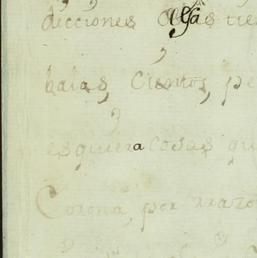 dicciones
baias, Cientos, pe
esquiera cosas qu
Corona, por razo